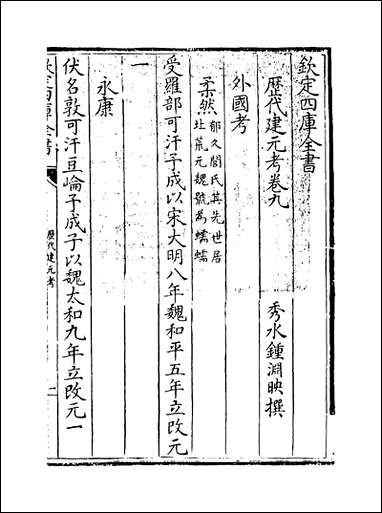 欽定四庫全書
歷代建元考卷九
秀水鍾淵映撰
外國考
柔然郁久閭氏其先世居
北荒元魏號為蠕蠕
受羅部可汗予成以宋大明八年魏和平五年立改元
一
永康
伏名敦可汗豆崘予成子以魏太和九年立改元一
欽定四庫全書
歷代建元考